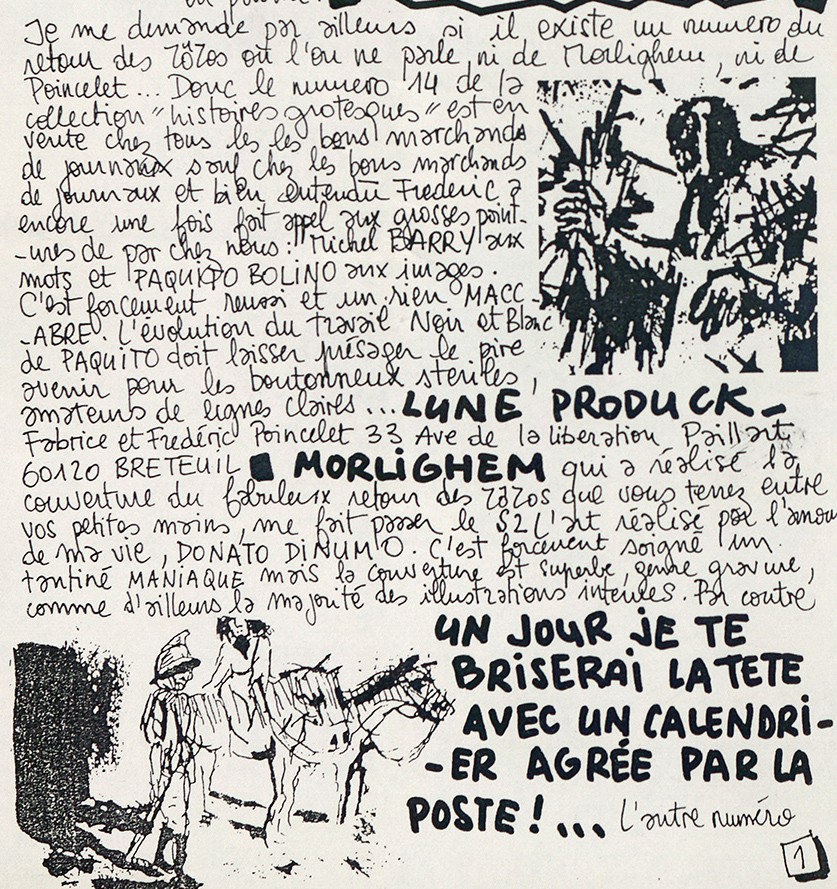 Je me demande par ailleurs si il existe un numero du
retour des Zözos où l'on ne parle ni de Morlighem, ni de
Poincelet... Donc le numero 14 de la
collection "histoires grotesques" est en
vente chez tous les les bons marchands
de journaux sauf chez les bons marchands
de journaux et bien entendu Frederic a
encore une fois fait appel aux grosses point-
-ures de par chez nous : Michel BARRY aux
mots et PAQUITO BOLINO aux images.
C'est forcement reussi et un rien MACC-
-ABRE. L'évolution du travail Noir et Blanc
de PAQUITO doit laisser présager le pire
avenir pour les boutonneux steriles,
amateurs de lignes claires... LUNE PRODUCK-
Fabrice et Frédéric Poincelet 33 Ave de la liberation Paillart
60120 BRETEUIL ■ MORLIGHEM qui a réalisé la
couverture du fabuleux retour des Zözos que vous tenez entre
vos petites mains, me fait passer le S2L'art réalisé par l'amour
de ma vie, DONATO DI NUM'O. C'est forcement soigné un
tantiné MANIAQUE mais la couverture est superbe, genre gravure,
comme d'ailleurs la majorité des illustrations interieures. Par contre
UN JOUR JE TE
BRISERAI LA TETE
AVEC UN CALENDRI-
-ER AGRÉE PAR LA
POSTE!... L'autre numéro
1